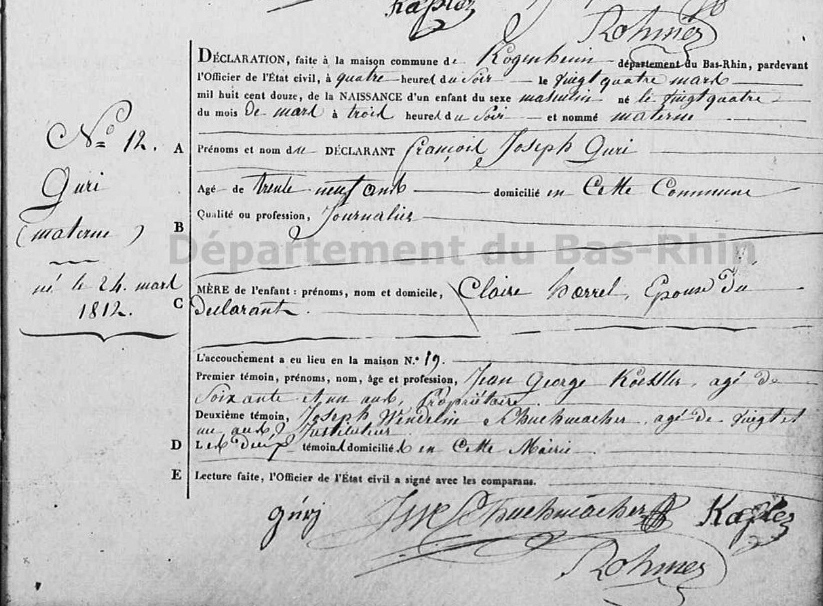 Kapler
Rohmer
DÉCLARATION, faite à la maison commune de Kogenheim département du Bas-Rhin, pardevant
l'Officier de l'État civil, à quatre heures du Soir le vingt quatre mars
mil huit cent douze, de la NAISSANCE d'un enfant du sexe masculin né le vingt quatre
du mois de mars à trois heures du Soir et nommé materne
N° 12.
A Prénoms et nom du DÉCLARANT françois Joseph Guri
Guri
Agé de trente neuf ans domicilié en Cette Commune
B Qualité ou profession, Journalier
(materne)
Département du Bas-Rhin
né le 24. mars
1812.
C MÈRE de l'enfant : prénoms, nom et domicile, Claire horrel, Epouse du
declarant.
L'accouchement a eu lieu en la maison N.° 19.
Premier témoin, prénoms, nom, âge et profession, Jean George Koessler, agé de
Soixante et un ans, Propriétaire.
Deuxième témoin, Joseph Wendelin Schuhmacher, agé de vingt et
un ans, Instituteur
D Les deux témoins domiciliés en Cette Mairie.
E Lecture faite, l'Officier de l'État civil a signé avec les comparans.
Schuhmacher Kapler
Rohmer